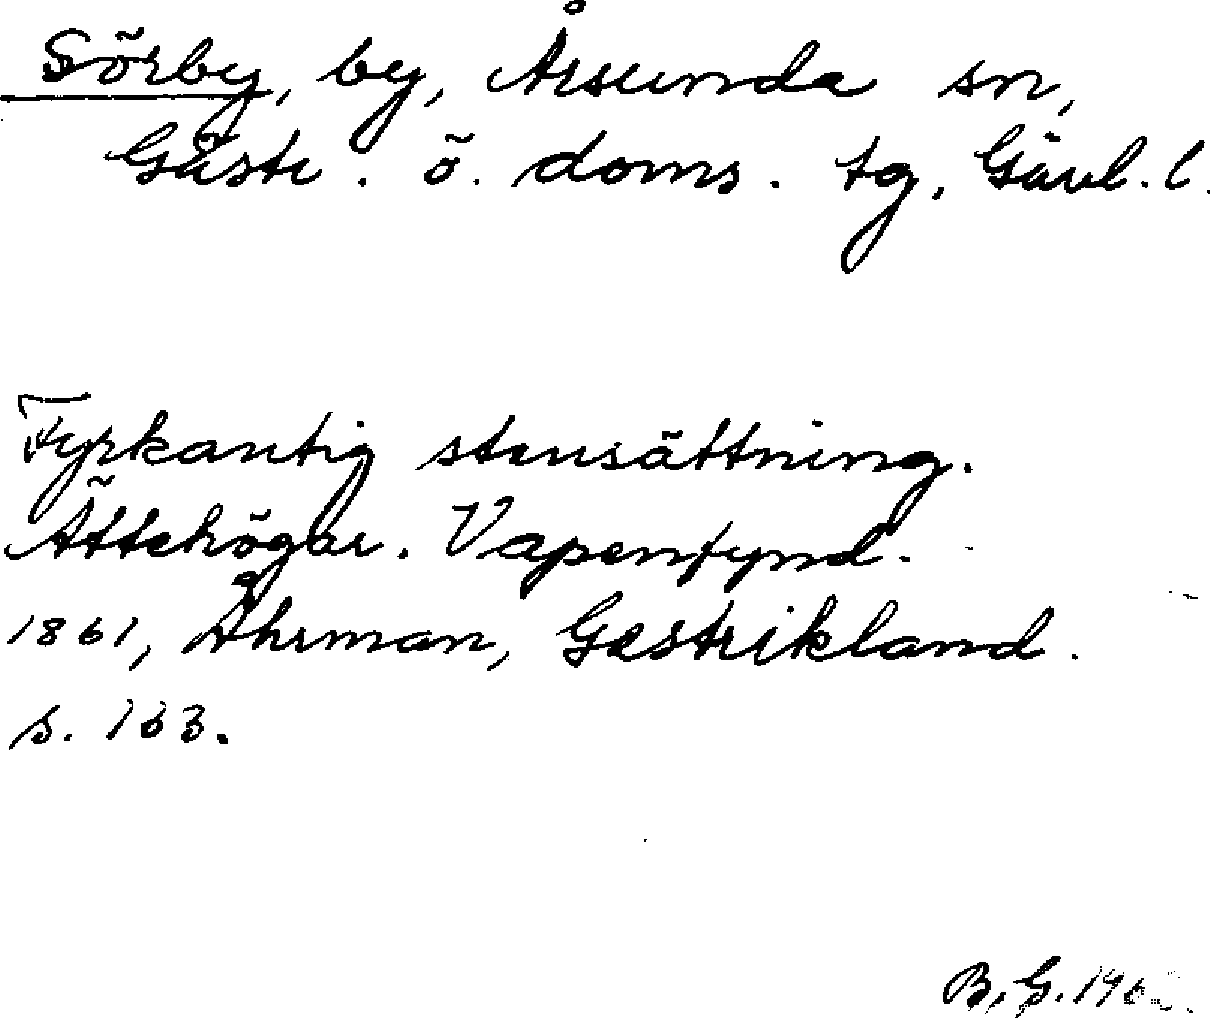 Sörby, by, Årsunda sn,
Gästr. ö. doms. tg, Gävl. l.
Fyrkantig stensättning.
Ättehögar. Vapenfynd.
1861, Åhrman, Gestrikland.
s. 163.
B. G.